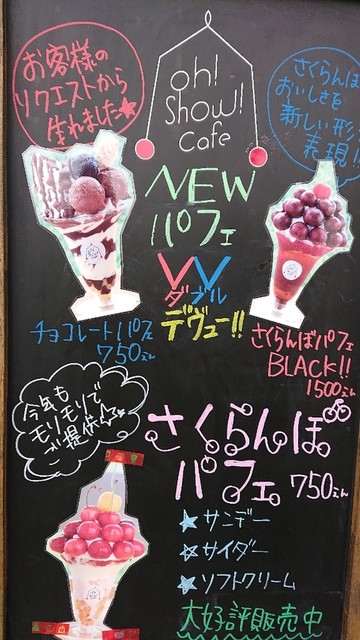 お客様の
リクエストから
生れました★
oh!
Show!
Cafe
さくらんぼ
おいしさを
新しい形
表現!
NEW
パフェ
VV
ダブル
デヴュー!!
チョコレートパフェ
750えん
さくらんぼパフェ
BLACK!!
1500えん
今年も
モリモリで
ご提供☆
さくらんぼ
パフェ 750えん
★サンデー
☆サイダー
★ソフトクリーム
大好評販売中